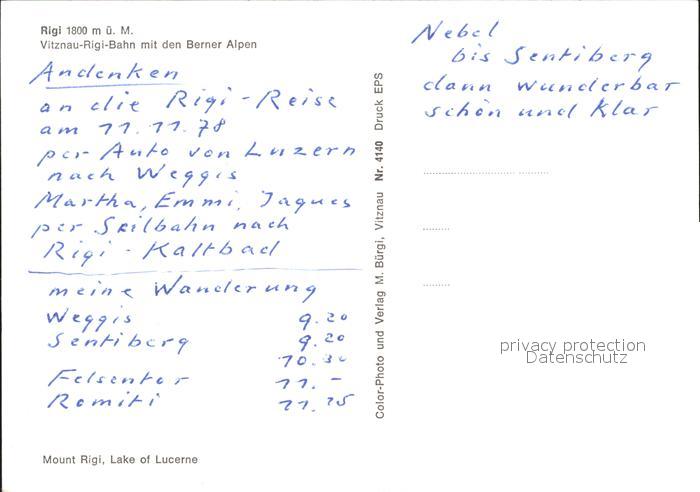 Rigi 1800 m ü. M.
Vitznau-Rigi-Bahn mit den Berner Alpen
Andenken
an die Rigi-Reise
am 11. 11. 78
per Auto von Luzern
nach Weggis
Martha, Emmi, Jaques
per Seilbahn nach
Rigi - Kaltbad
meine Wanderung
Weggis 9.20
Sentiberg 9.20
10.30
Felsentor 11.-
Romiti 11.15
Mount Rigi, Lake of Lucerne
Color-Photo und Verlag M. Bürgi, Vitznau Nr. 4140 Druck EPS
Nebel
bis Sentiberg
dann wunderbar
schön und Klar
privacy protection
Datenschutz